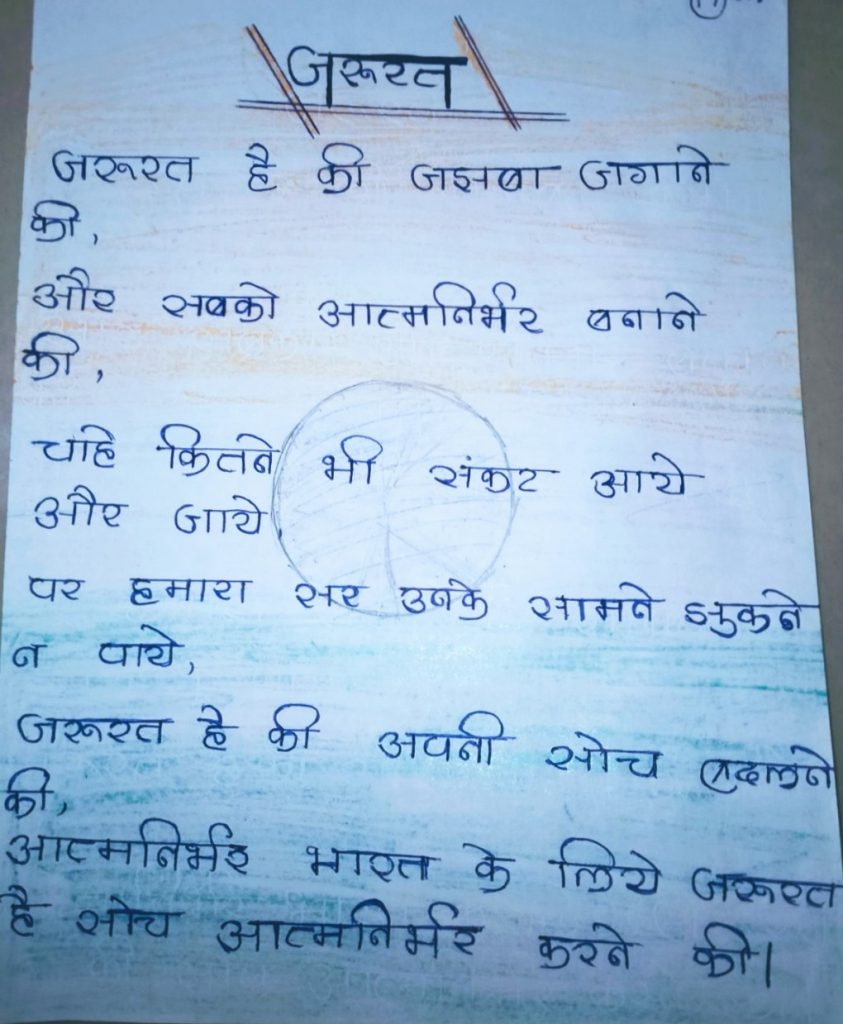 जरूरत
जरूरत है की जज़बा जगाने
की,
और सबको आत्मनिर्भर बनाने
की,
चाहे कितने भी संकट आये
और जाये
पर हमारा सर उनके सामने झुकने
न पाये,
जरूरत है की अपनी सोच बदलने
की,
आत्मनिर्भर भारत के लिये जरूरत
है सोच आत्मनिर्भर करने की।